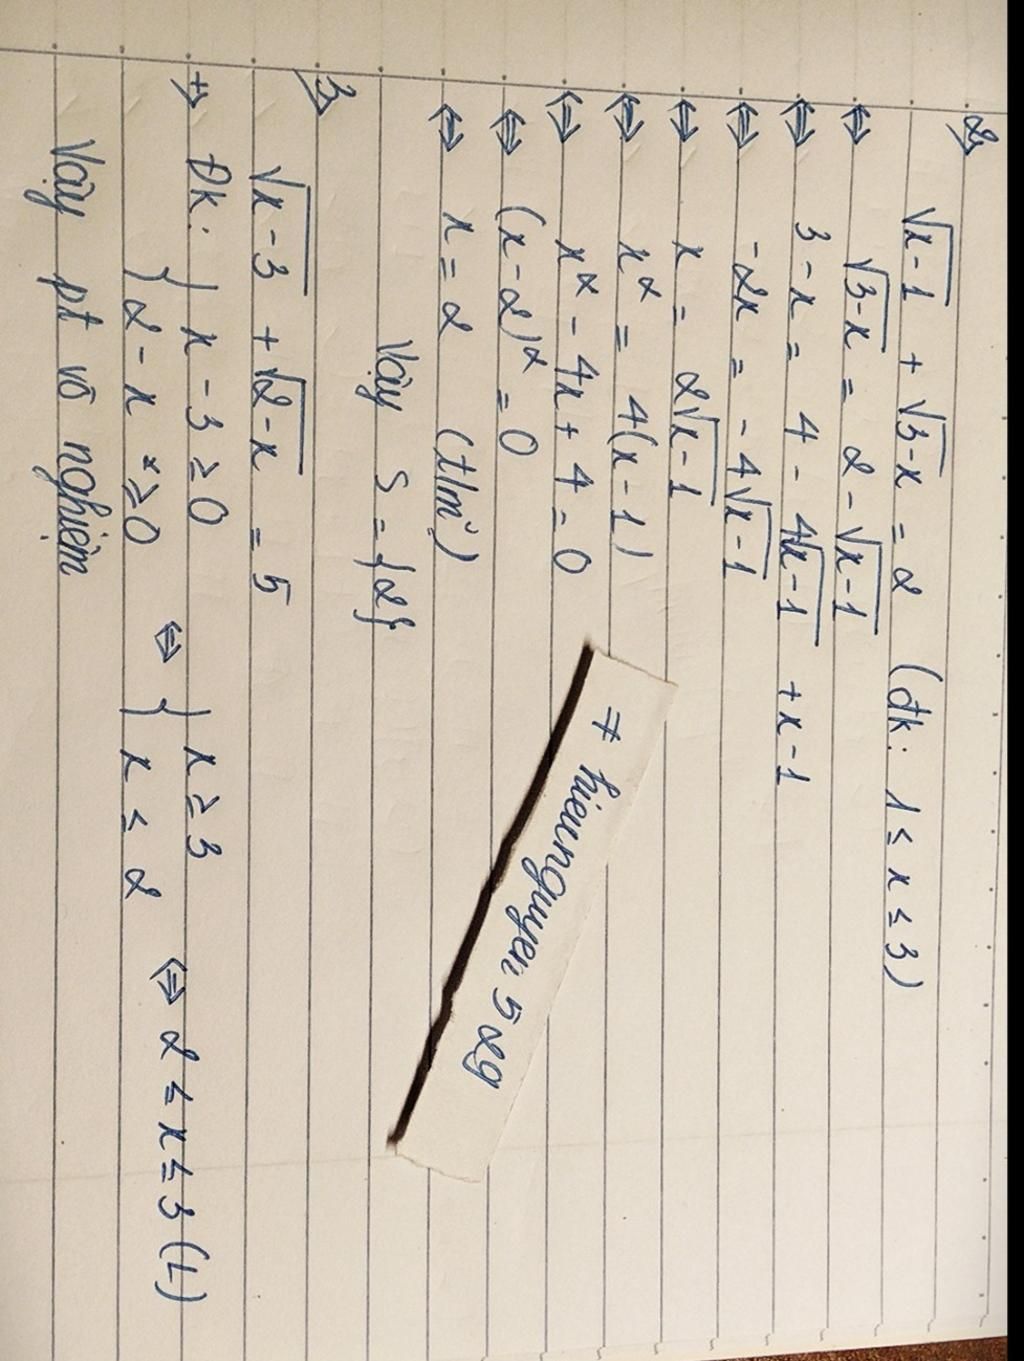 2,
√x-1 + √3-x = 2 (đk: 1 ≤ x ≤ 3)
⇔ √3-x = 2 - √x-1
⇔ 3-x = 4 - 4√x-1 + x-1
⇔ -2x = -4√x-1
⇔ x = 2√x-1
⇔ x² = 4(x-1)
⇔ x² - 4x + 4 = 0
⇔ (x-2)² = 0
⇔ x = 2 (t/m)
Vậy S = {2}
3,
√x-3 + √2-x = 5
+, Đk: { x-3 ≥ 0 ⇔ { x ≥ 3 ⇔ 2 ≤ x ≤ 3 (L)
{ 2-x ≥ 0 { x ≤ 2
Vậy pt vô nghiệm
hieunguyen 5